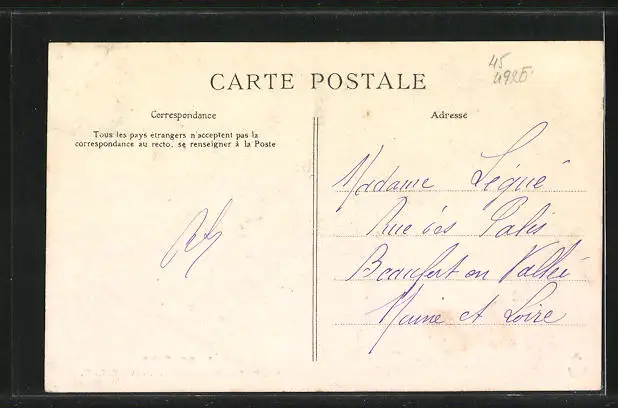 45
4925
CARTE POSTALE
Correspondance
Tous les pays étrangers n'acceptent pas la
correspondance au recto, se renseigner à la Poste
Adresse
Madame Légué
Rue des Palis
Beaufort en Vallée
Maine et Loire